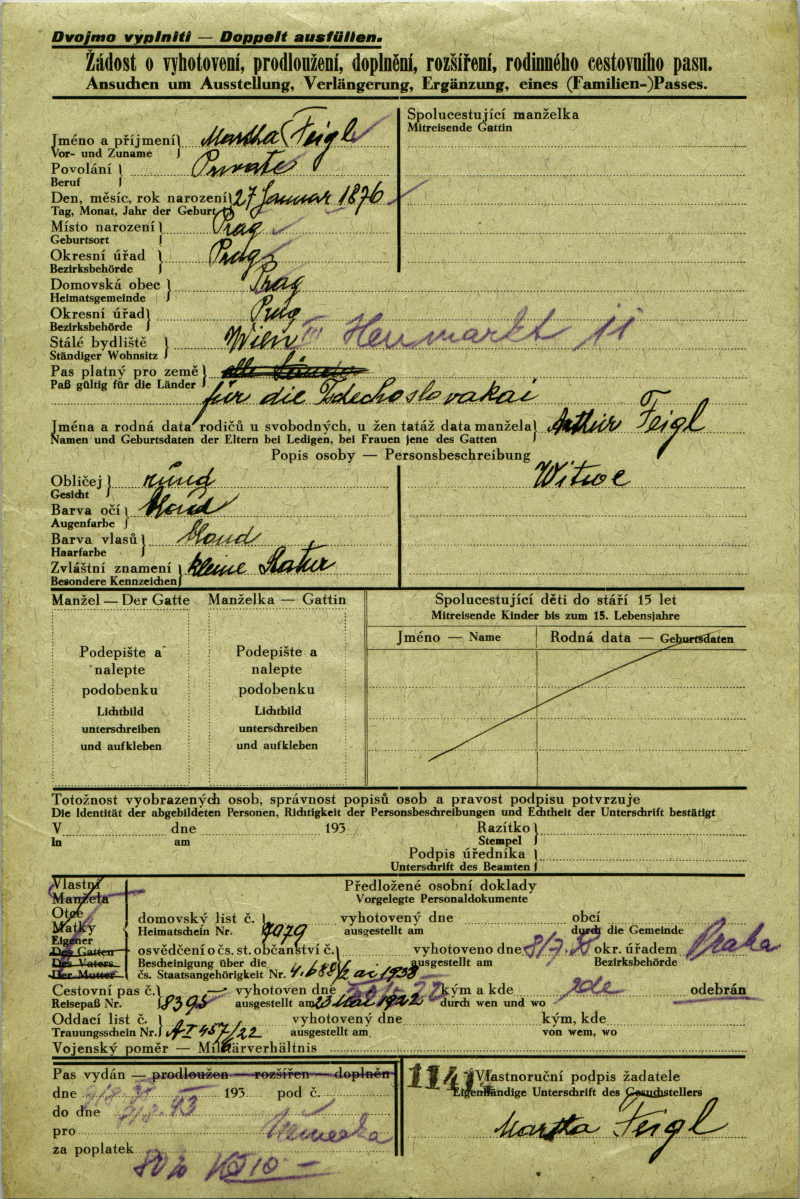 Dvojmo vyplniti — Doppelt ausfüllen.
Žádost o vyhotovení, prodloužení, doplnění, rozšíření, rodinného cestovního pasu.
Ansuchen um Ausstellung, Verlängerung, Ergänzung, eines (Familien-)Passes.
Jméno a příjmení Martha Feigl
Vor- und Zuname
Spolucestující manželka
Mitreisende Gattin
Povolání Private
Beruf
Den, měsíc, rok narození 27 Januar 1876
Tag, Monat, Jahr der Geburt
Místo narození Prag
Geburtsort
Okresní úřad Prag
Bezirksbehörde
Domovská obec Prag
Heimatsgemeinde
Okresní úřad Prag
Bezirksbehörde
Stálé bydliště Wien III Heumarkt 11
Ständiger Wohnsitz
Pas platný pro země alle Länder
Paß gültig für die Länder
für die Tschechoslovakai
Jména a rodná data rodičů u svobodných, u žen tatáž data manžela Arthur Feigl
Namen und Geburtsdaten der Eltern bei Ledigen, bei Frauen jene des Gatten
Popis osoby — Personsbeschreibung
Witwe
Obličej rund
Gesicht
Barva očí
Augenfarbe
Barva vlasů blond
Haarfarbe
Zvláštní znamení kleine Statur
Besondere Kennzeichen
Manžel — Der Gatte
Manželka — Gattin
Spolucestující děti do stáří 15 let
Mitreisende Kinder bis zum 15. Lebensjahre
Jméno — Name
Rodná data — Geburtsdaten
Podepište a
nalepte
podobenku
Lichtbild
unterschreiben
und aufkleben
Podepište a
nalepte
podobenku
Lichtbild
unterschreiben
und aufkleben
Totožnost vyobrazených osob, správnost popisů osob a pravost podpisu potvrzuje
Die Identität der abgebildeten Personen, Richtigkeit der Personsbeschreibungen und Echtheit der Unterschrift bestätigt
V dne 193 Razítko
In am Stempel
Podpis úředníka
Unterschrift des Beamten
Vlastní
Manžela
Otce
Matky
Eigener
Des Gatten
Des Vaters
Der Mutter
Předložené osobní doklady
Vorgelegte Personaldokumente
domovský list č. 7979 vyhotovený dne obcí
Heimatschein Nr. ausgestellt am durch die Gemeinde
osvědčení o čs. st. občanství č. vyhotoveno dne 8/7.38 okr. úřadem Praha
Bescheinigung über die ausgestellt am Bezirksbehörde
čs. Staatsangehörigkeit Nr. 4.688/ 1938
Cestovní pas č. 8395 vyhotoven dne kým a kde zde odebrán
Reisepaß Nr. ausgestellt am 23 Mai 1922 durch wen und wo
Oddací list č. vyhotovený dne kým, kde
Trauungsschein Nr. AI 457/22 ausgestellt am von wem, wo
Vojenský poměr — Militärverhältnis
Pas vydán — prodloužen — rozšířen — doplněn
dne 9/8 38 193 pod č. 1141
do dne 9/8.43
pro Německa
za poplatek
Vlastnoruční podpis žadatele
Eigenhändige Unterschrift des Gesuchstellers
Martha Feigl